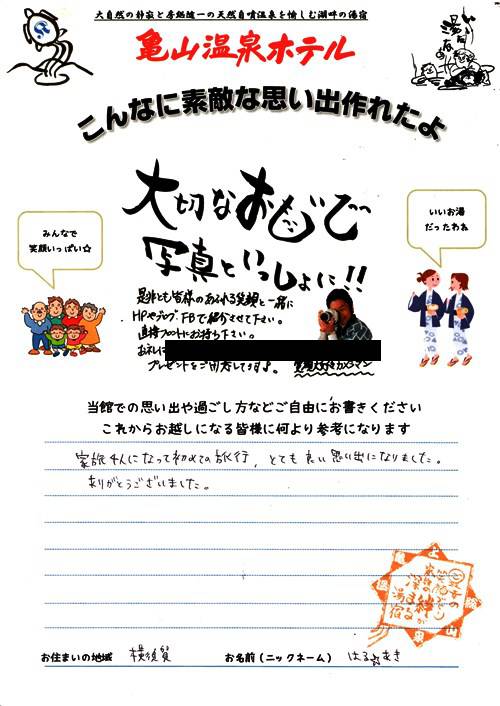 大自然の静寂と房総随一の天然自噴温泉を愉しむ湖畔の湯宿
亀山温泉ホテル
こんなに素敵な思い出作れたよ
大切なおもいで
写真といっしょに!!
みんなで
笑顔いっぱい☆
いいお湯
だったわね
是非とも皆様のあふれる笑顔と一緒に
HPやブログ、FBで紹介させて下さい。
直接フロントにお持ち下さい。
お礼に
プレゼントをご用意してます♪
当館での思い出や過ごし方などご自由にお書きください
これからお越しになる皆様に何より参考になります
家族4人になって初めての旅行、とても良い思い出になりました。
ありがとうございました。
お住まいの地域 横須賀
お名前(ニックネーム) はる☆あき